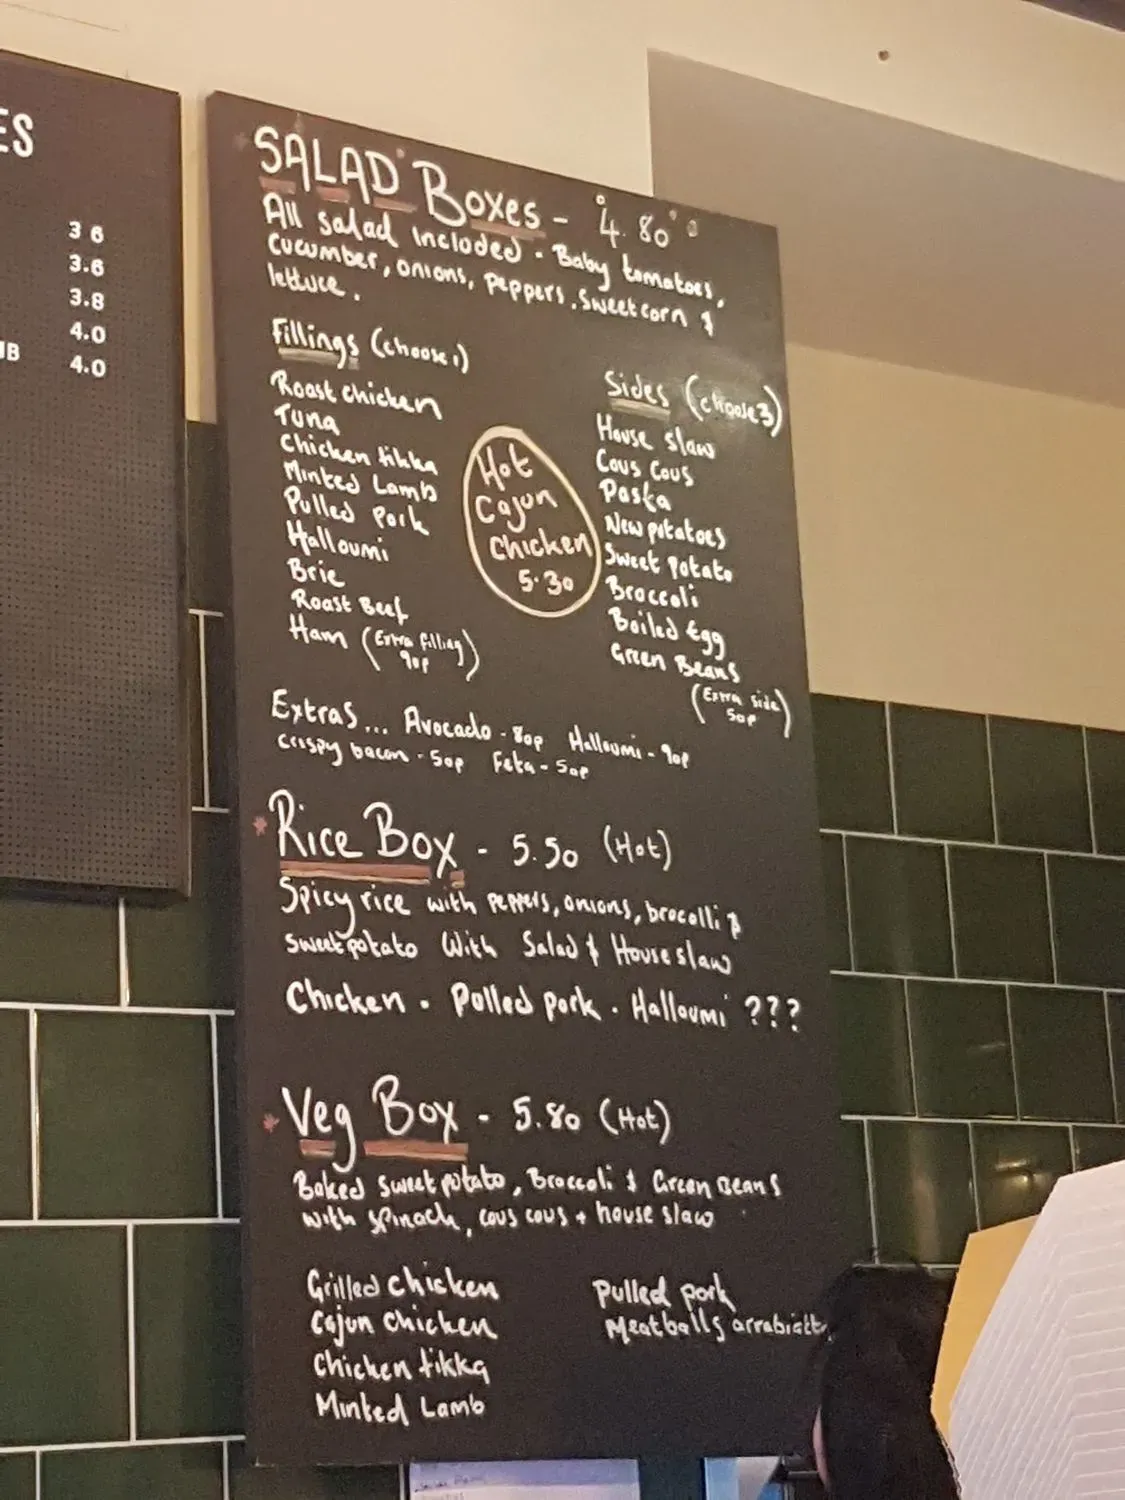 ES
3 6
3.6
3.8
4.0
4.0
SALAD Boxes - 4.80
All salad included. Baby tomatoes,
cucumber, onions, peppers. Sweetcorn &
lettuce.
Fillings (choose 1)
Roast chicken
Tuna
Chicken tikka
Minted Lamb
Pulled Pork
Halloumi
Brie
Roast Beef
Ham (Extra filling
90p)
Hot
Cajun
Chicken
5.30
Sides (choose 3)
House slaw
Cous Cous
Pasta
New potatoes
Sweet potato
Broccoli
Boiled Egg
Green Beans
(Extra side
50p)
Extras... Avocado - 80p Halloumi - 90p
Crispy bacon - 50p Feta - 50p
*Rice Box - 5.50 (Hot)
Spicy rice with peppers, onions, brocolli &
sweetpotato With Salad & House slaw
Chicken . Pulled pork . Halloumi ???
*Veg Box - 5.80 (Hot)
Baked sweet potato, Broccoli & Green Beans
with spinach, cous cous + house slaw
Grilled chicken
Cajun chicken
Chicken tikka
Minted Lamb
Pulled pork
Meatballs arrabiatta